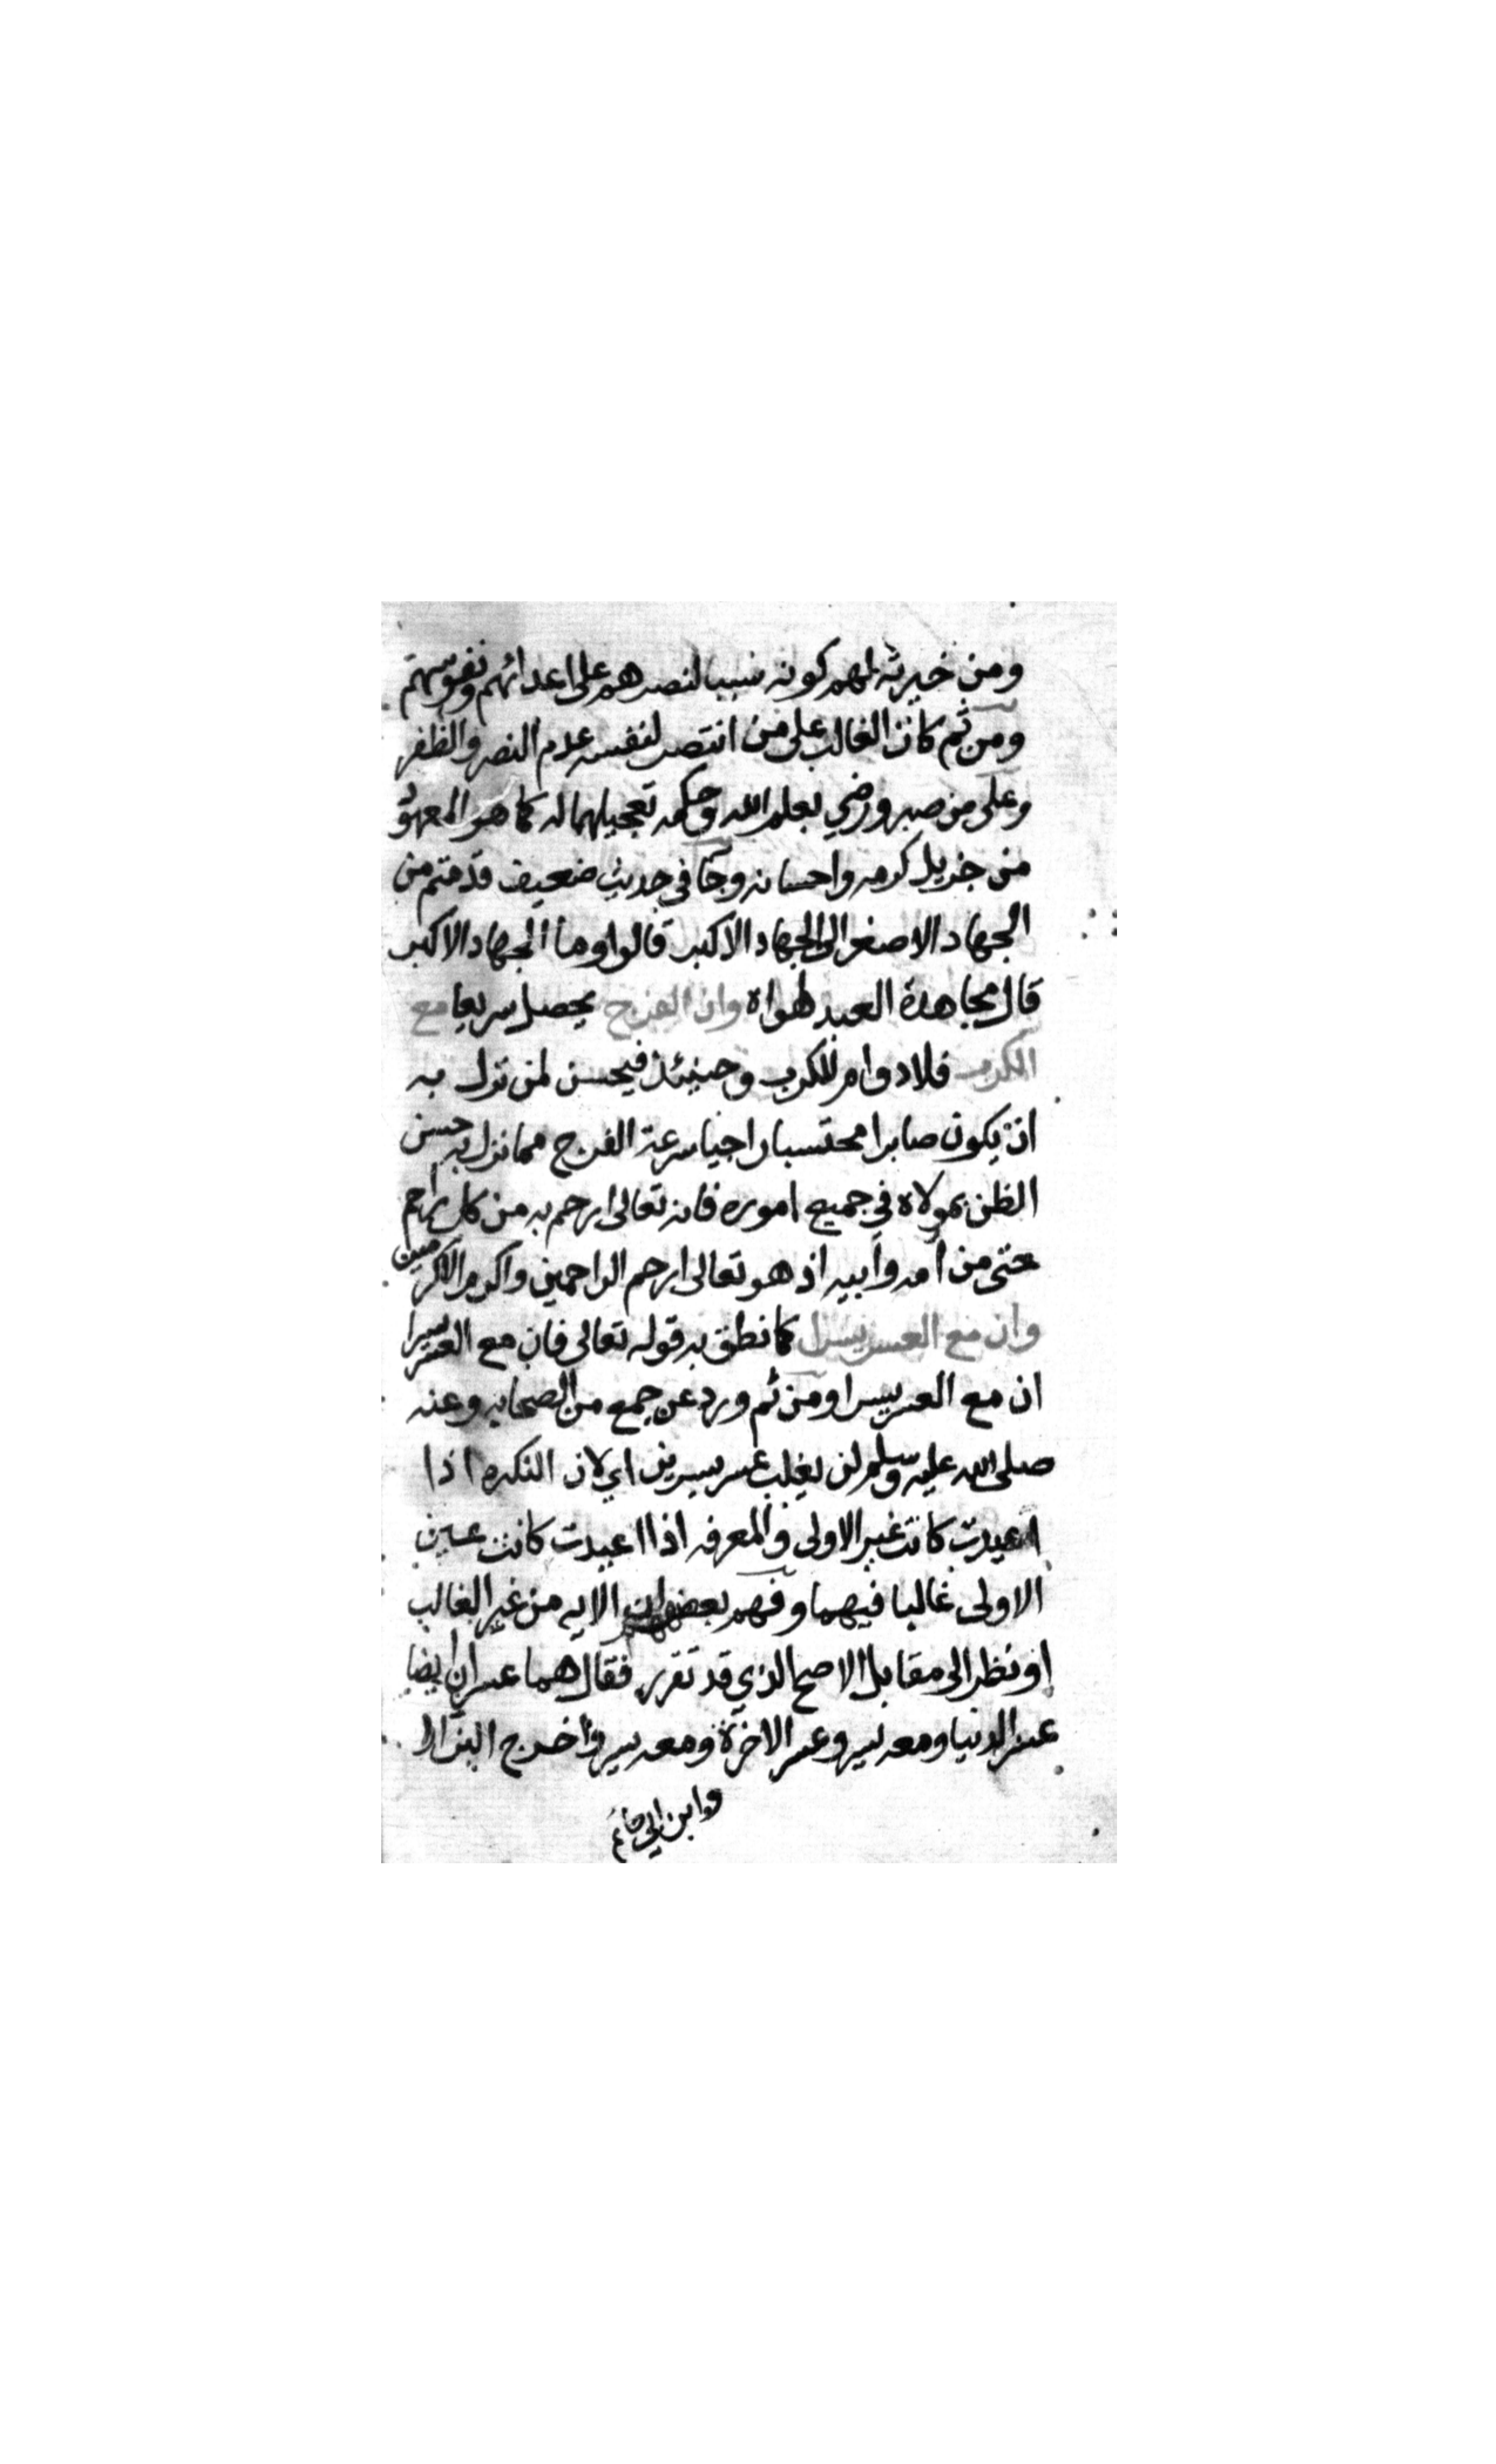 ومن خيريته لهم كونه سببا لنصرهم على اعدائهم ونفوسهم
ومن ثم كان الغالب على من انتصر لنفسه عدم النصر والظفر
وعلى من صبر ورضي بعلم الله وحكمه تعجيلهما له كما هو المعهود
من جزيل كرمه واحسانه وجا في حديث ضعيف قدمتم من
الجهاد الاصغر الى الجهاد الاكبر قالوا وما الجهاد الاكبر
قال مجاهدة العبد لهواه وان الفرج يحصل سريعا مع
الكرب فلا دوام للكرب وحينئذ فيحسن لمن نزل به
ان يكون صابرا محتسبا راجيا سرعة الفرج مما نزل به حسن
الظن بمولاه في جميع اموره فانه تعالى ارحم به من كل راحم
حتى من أمه وأبيه اذ هو تعالى ارحم الراحمين واكرم الاكرمين
وان مع العسر يسرا كما نطق به قوله تعالى فان مع العسر يسرا
ان مع العسر يسرا ومن ثم ورد عن جمع من الصحابه وعنه
صلى الله عليه وسلم لن يغلب عسر يسرين اي لان النكره اذا
اعيدت كانت غير الاولى والمعرفه اذا اعيدت كانت عين
الاولى غالبا فيهما وفهم بعضهم ان الايه من غير الغالب
او نظر الى مقابل الاصح الذي قد تقرر فقال هما عسران ايضا
عسر الدنيا ومعه يسر وعسر الاخرة ومعه يسر وأخرج البزار
وابن ابي حاتم